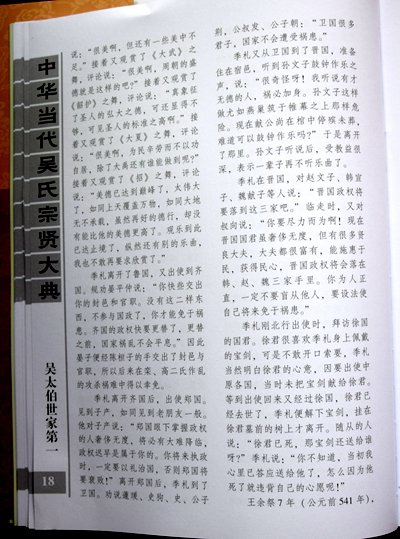 中华当代吴氏宗贤大典
吴太伯世家第一
18
说：“很美啊，但还有一些美中不
足。”接着又观赏了《大武》之
舞，评论说：“很美啊，周朝的盛
德就是这样的吧？”接着又观赏了
《韶护》之舞，评论说：“真象征
了圣人的弘大之德，可还显得不
够，可见圣人的标准之高啊。”接
着又观赏了《大夏》之舞，评论
说：“很美啊，为民辛劳而不以功
自居，除了大禹还有谁能做到呢？”
接着又观赏了《招》之舞，评论
说：“美德已达到巅峰了，太伟大
了，如同上天覆盖万物，如同大地
无不承载，虽然再好的德行，却没
有能比他的美德更高了。观乐到此
已达止境了，纵然还有别的乐曲，
我也不敢再要求欣赏了。”
季札离开了鲁国，又出使到齐
国。规劝晏平仲说：“你快些交出
你的封邑和官职。没有这二样东
西，不参与国政了，你才能免于祸
患。齐国的政权快要更替了，更替
之前，国家祸乱不会平息。”因此
晏子便经陈桓子的手交出了封邑与
官职，所以后来在栾、高二氏作乱
的攻杀祸难中得以幸免。
季札离开齐国后，出使郑国。
见到子产，如同见到老朋友一般。
他对子产说：“郑国眼下掌握政权
的人奢侈无度，将必有大难降临，
政权迟早是属于你的。你将来执政
时，一定要以礼治国，否则郑国将
要衰败！”离开郑国后，季札到了
卫国。劝说蘧瑗、史狗、史、公子
荆、公叔发、公子朝：“卫国很多
君子，国家不会遭受祸患。”
季札又从卫国到了晋国，准备
住在宿邑，听到孙文子鼓钟作乐之
声，说：“很奇怪呀！我听说有才
无德的人，祸必加身。孙文子这样
做尤如燕巢筑于帷幕之上那样危
险。现在献公尚在棺中停殡未葬，
难道可以鼓钟作乐吗？”于是离开
了那里。孙文子听说后，受教益很
深，表示一辈子再不听乐曲了。
季札在晋国，对赵文子、韩宣
子、魏献子等人说：“晋国政权将
要落到这三家吧。”临走时，又对
叔向说：“你要尽力而为啊！现在
晋国国君虽奢侈无度，但有很多贤
良大夫，大夫都很富有，能施惠于
民，获得民心，晋国政权将会落在
韩、赵、魏三家手里。你为人正
直，一定不要盲从他人，要设法使
自己将来免于祸患。”
季札刚北行出使时，拜访徐国
的国君。徐君很喜欢季札身上佩戴
的宝剑，可是不敢开口索要，季札
当然明白徐君的心意，因要出使中
原各国，当时未把宝剑献给徐君。
等到出使回来又经过徐国，徐君已
经去世了，季札便解下宝剑，挂在
徐君墓前的树上才离开。随从的人
说：“徐君已死，那宝剑还送给谁
呀？”季札说：“你不知道，当初我
心里已答应送给他了，怎么因为他
死了就违背自己的心愿呢！”
王余祭 7 年（公元前 541 年），